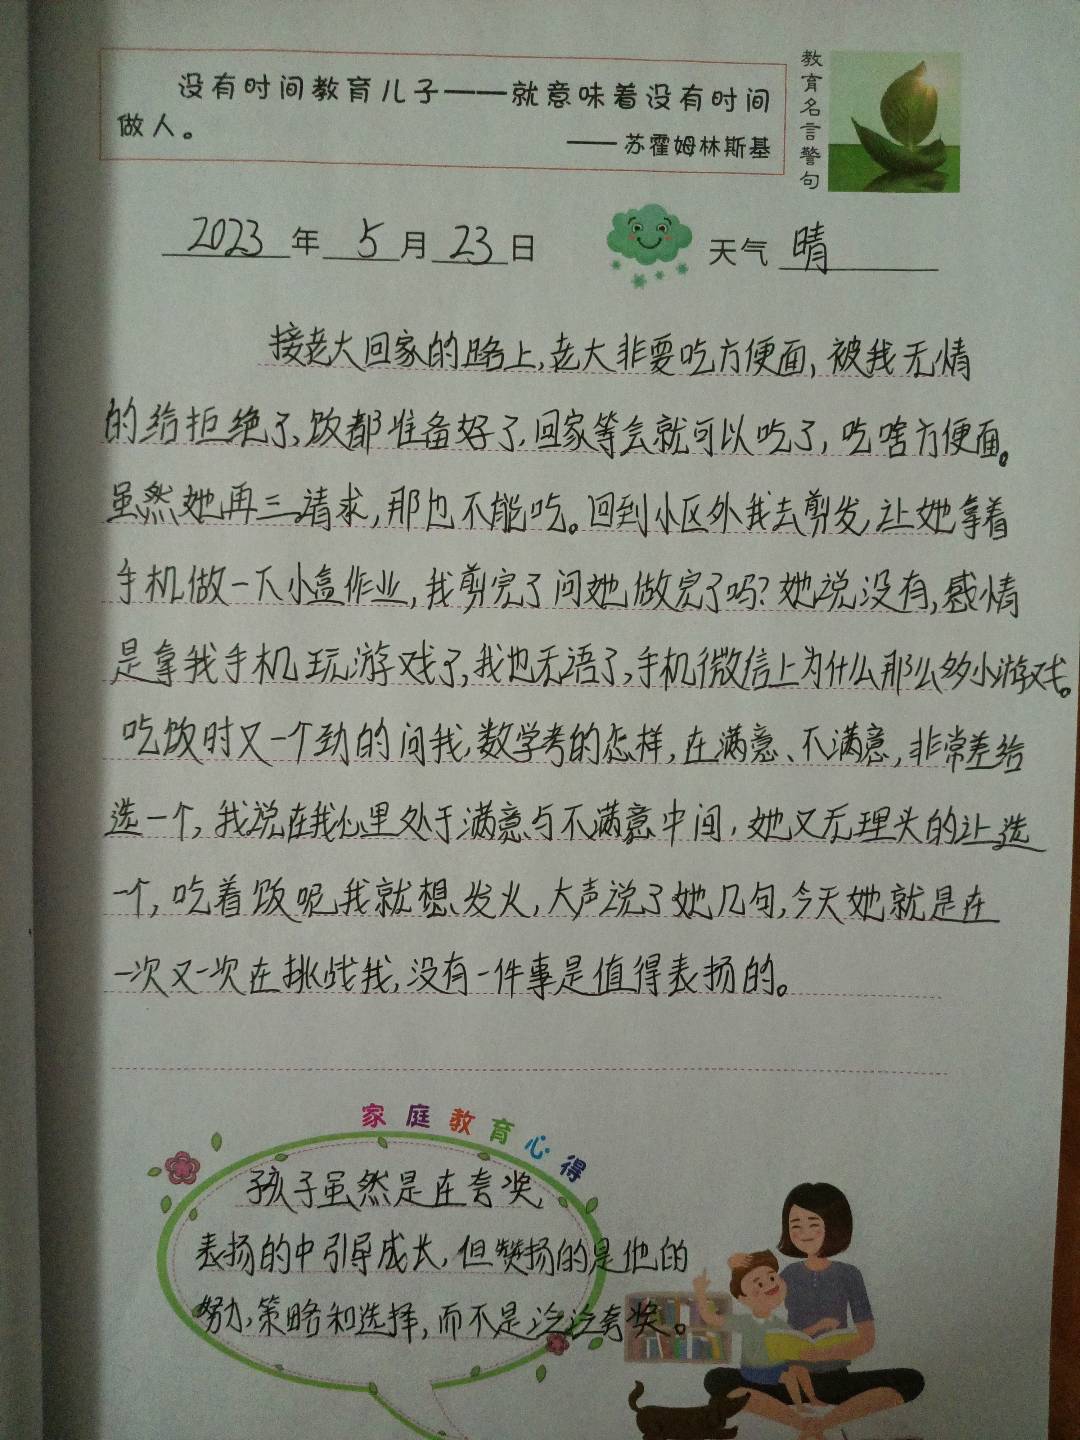 没有时间教育儿子——就意味着没有时间
做人。
——苏霍姆林斯基
教育名言警句
2023年5月23日
天气 晴
接老大回家的路上,老大非要吃方便面,被我无情
的给拒绝了,饭都准备好了,回家等会就可以吃了,吃啥方便面。
虽然她再三请求,那也不能吃。回到小区外我去剪发,让她拿着
手机做一下小盒作业,我剪完了问她做完了吗?她说没有,感情
是拿我手机玩游戏了,我也无语了,手机微信上为什么那么多小游戏。
吃饭时又一个劲的问我,数学考的怎样,在满意、不满意,非常差给
选一个,我说在我心里处于满意与不满意中间,她又无理头的让选
一个,吃着饭呢我就想发火,大声说了她几句,今天她就是在
一次又一次在挑战我,没有一件事是值得表扬的。
家庭教育心得
孩子虽然是在夸奖
表扬的中引导成长,但赞扬的是他的
努力,策略和选择,而不是泛泛夸奖。